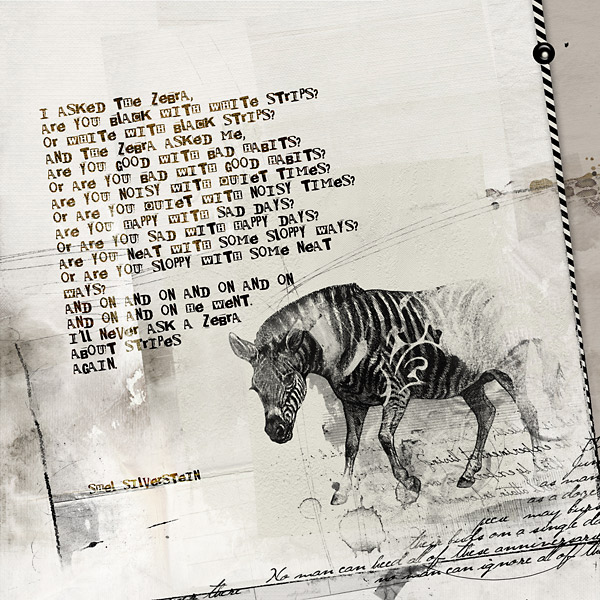 I ASKED THE ZEBRA,
ARE YOU BLACK WITH WHITE STRIPS?
OR WHITE WITH BLACK STRIPS?
AND THE ZEBRA ASKED ME,
ARE YOU GOOD WITH BAD HABITS?
OR ARE YOU BAD WITH GOOD HABITS?
ARE YOU NOISY WITH QUIET TIMES?
OR ARE YOU QUIET WITH NOISY TIMES?
ARE YOU HAPPY WITH SAD DAYS?
OR ARE YOU SAD WITH HAPPY DAYS?
ARE YOU NEAT WITH SOME SLOPPY WAYS?
OR ARE YOU SLOPPY WITH SOME NEAT
WAYS?
AND ON AND ON AND ON AND ON
AND ON AND ON HE WENT.
I'LL NEVER ASK A ZEBRA
ABOUT STRIPES
AGAIN.
SHEL SILVERSTEIN
as a doze
may
on a single da
No man can heed all of these anniversaries
no man can ignore all of th
there